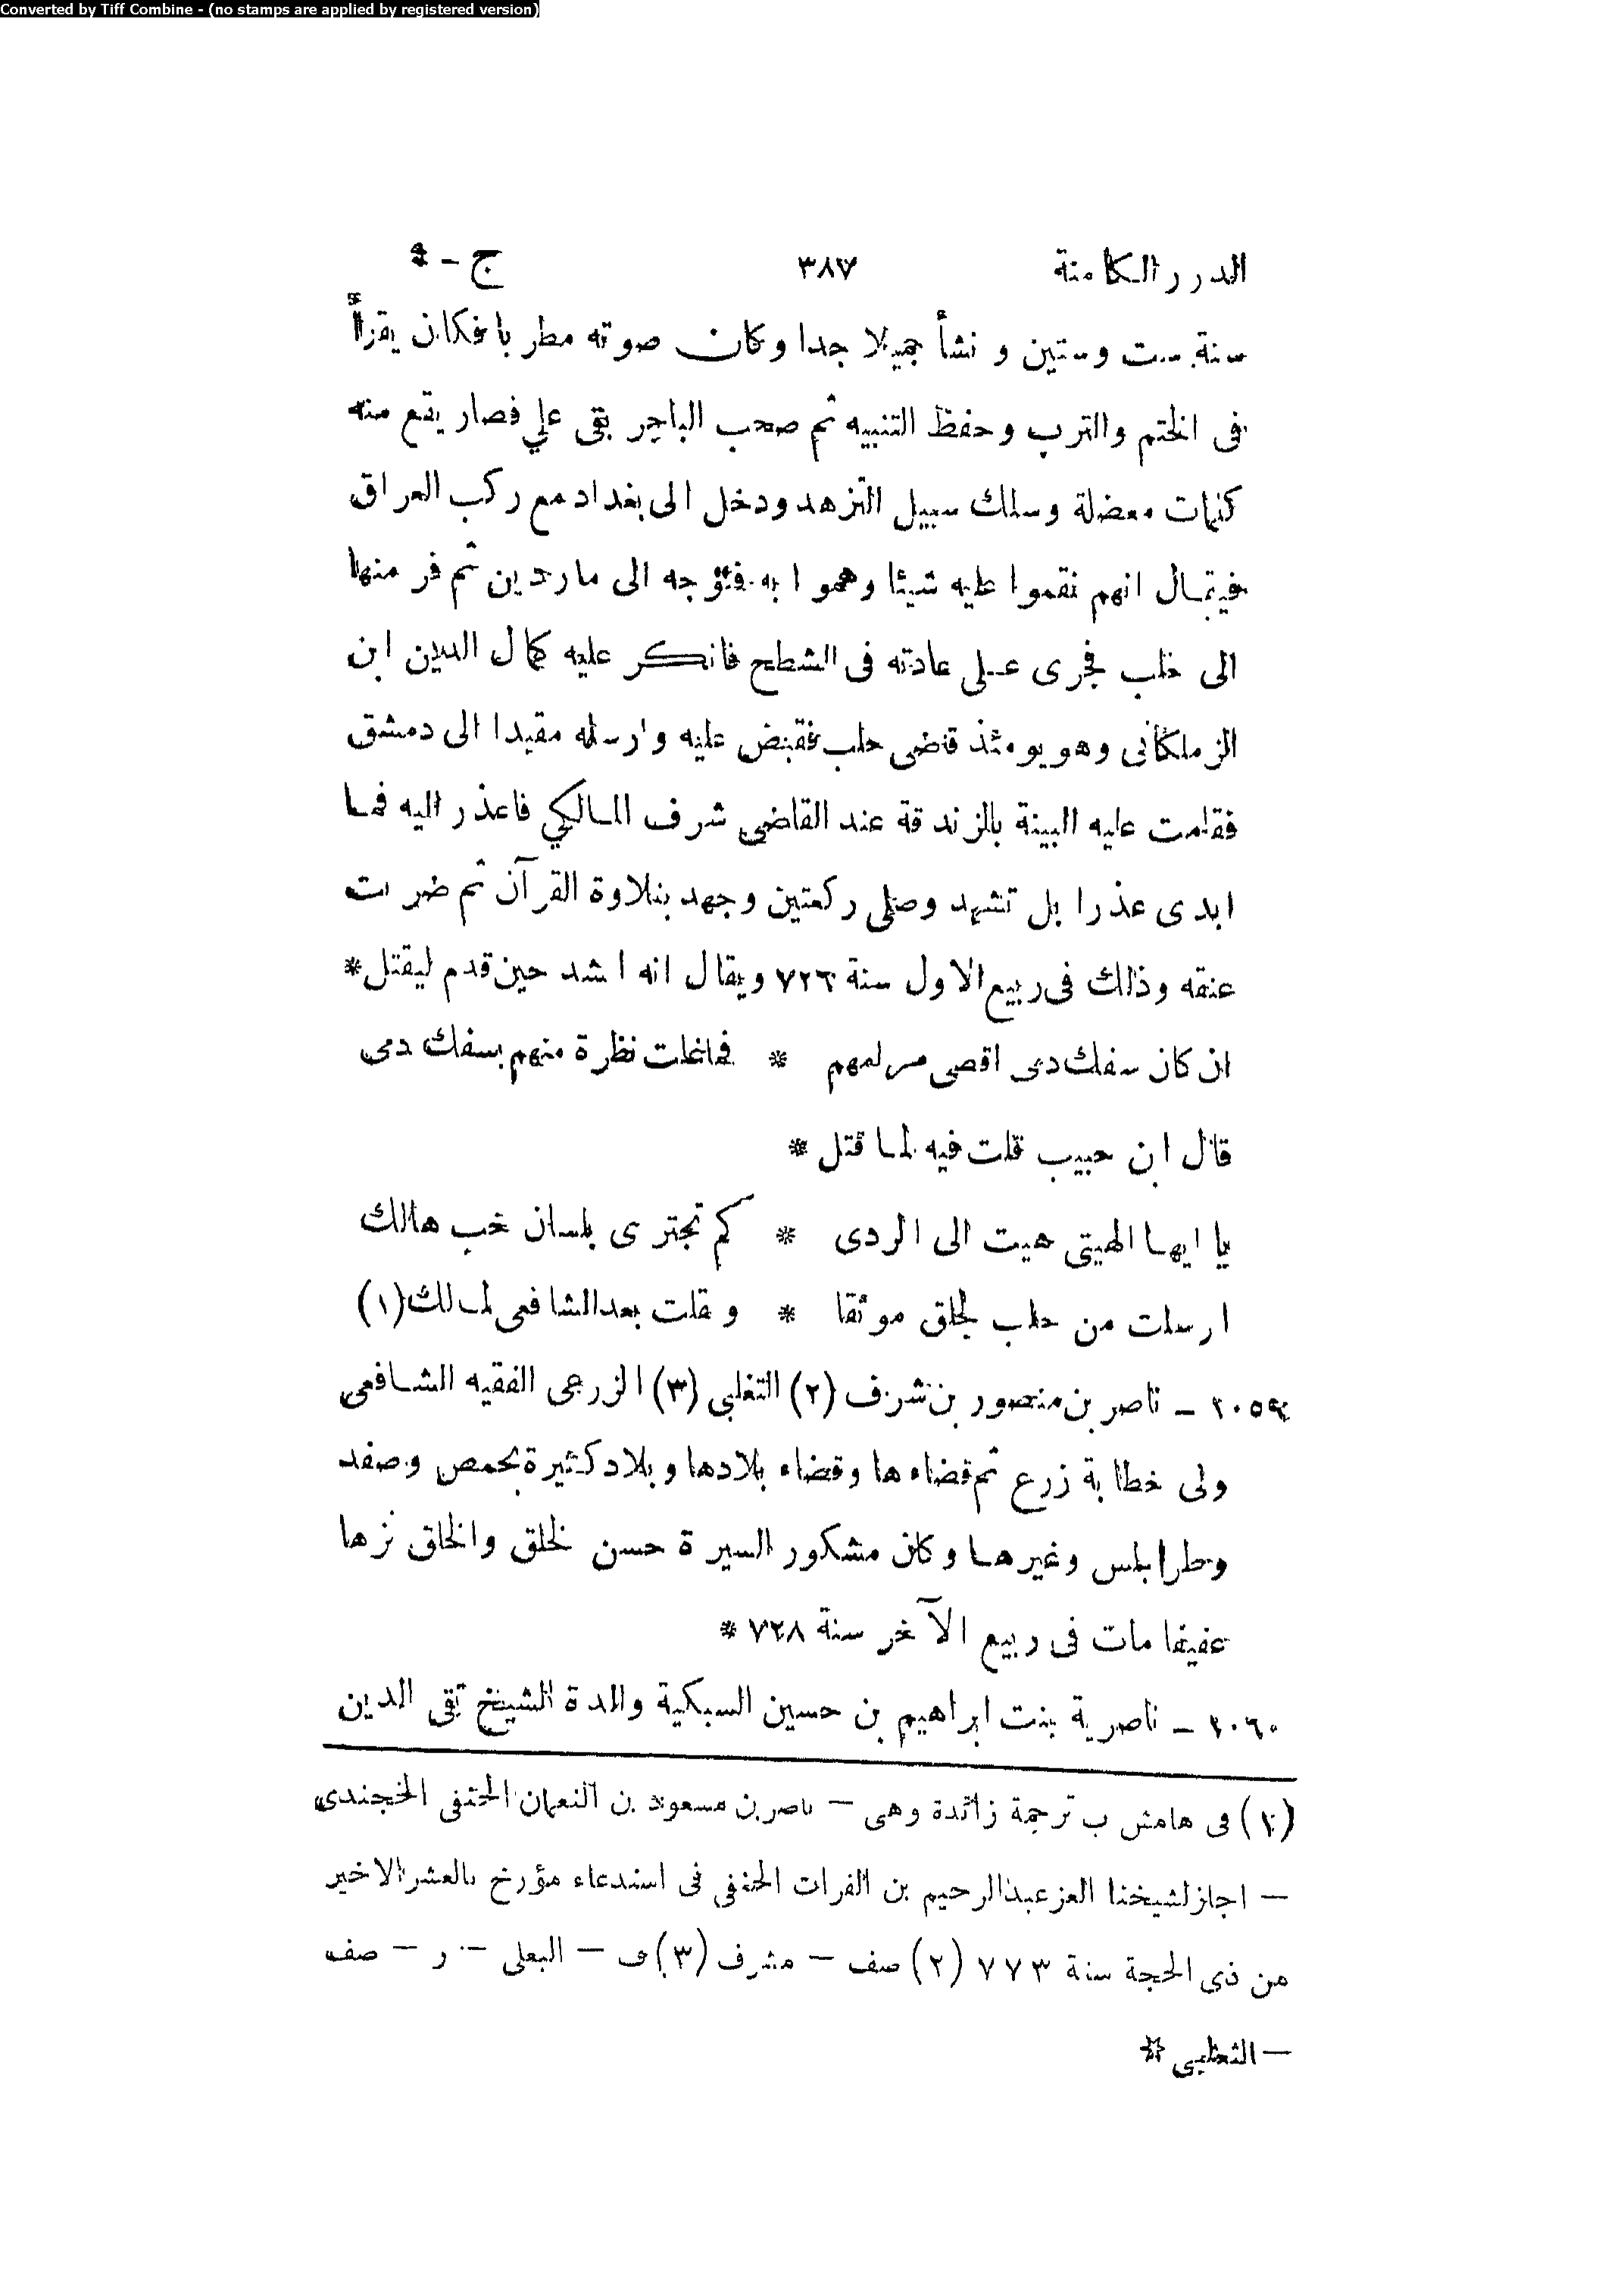 Converted by Tiff Combine - (no stamps are applied by registered version)
الدرر الكامنة ٣٨٧ ج - ٤
سنة ست وستين و نشأ جميلا جدا وكان صوته مطربا فكان يقرأ
فى الختم والترب وحفظ التنبيه ثم صحب الباجر بقى علي فصار يقع منه
كلمات معضلة وسلك سبيل التزهد ودخل الى بغداد مع ركب العراق
فيقال انهم نقموا عليه شيئا وهموا به فتوجه الى ماردين ثم فر منها
الى حلب فجرى على عادته فى الشطح فانكر عليه كمال الدين ابن
الزملكانى وهو يومئذ قاضى حلب فقبض عليه وارسله مقيدا الى دمشق
فقامت عليه البينة بالزندقة عند القاضى شرف المالكي فاعذر اليه فما
ابدى عذرا بل تشهد وصلى ركعتين وجهد بتلاوة القرآن ثم ضربت
عنقه وذلك فى ربيع الاول سنة ٧٢٦ ويقال انه انشد حين قدم ليقتل *
ان كان سفك دمى اقصى مرامهم * فما غلت نظرة منهم بسفك دمى
قال ابن حبيب قلت فيه لما قتل *
يا ايها الهيتى هيت الى الردى * كم تجترى بلسان خب هالك
ارسلت من حلب لجلق موثقا * وقلت بعد الشافعى لمالك (١)
٢٠٥٩ - ناصر بن منصور بن شرف (٢) التغلبى (٣) الزرعى الفقيه الشافعى
ولى خطابة زرع ثم قضاءها وقضاء بلادها وبلاد كثيرة بحمص وصفد
وطرابلس وغيرها وكان مشكور السيرة حسن الخلق والخلق نزها
عفيفا مات فى ربيع الآخر سنة ٧٢٨ *
٢٠٦٠ - ناصرية بنت ابراهيم بن حسين السبكية والدة الشيخ تقى الدين
(١) فى هامش ب ترجمة زائدة وهى - ناصر بن مسعود بن النعمان الحنفى الخجندى
- اجاز لشيخنا العز عبد الرحيم بن الفرات الحنفى فى استدعاء مؤرخ بالعشر الاخير
من ذى الحجة سنة ٧٧٣ (٢) صف - مشرف (٣) ى - البعلى - ر - صف
- الثعلبى *